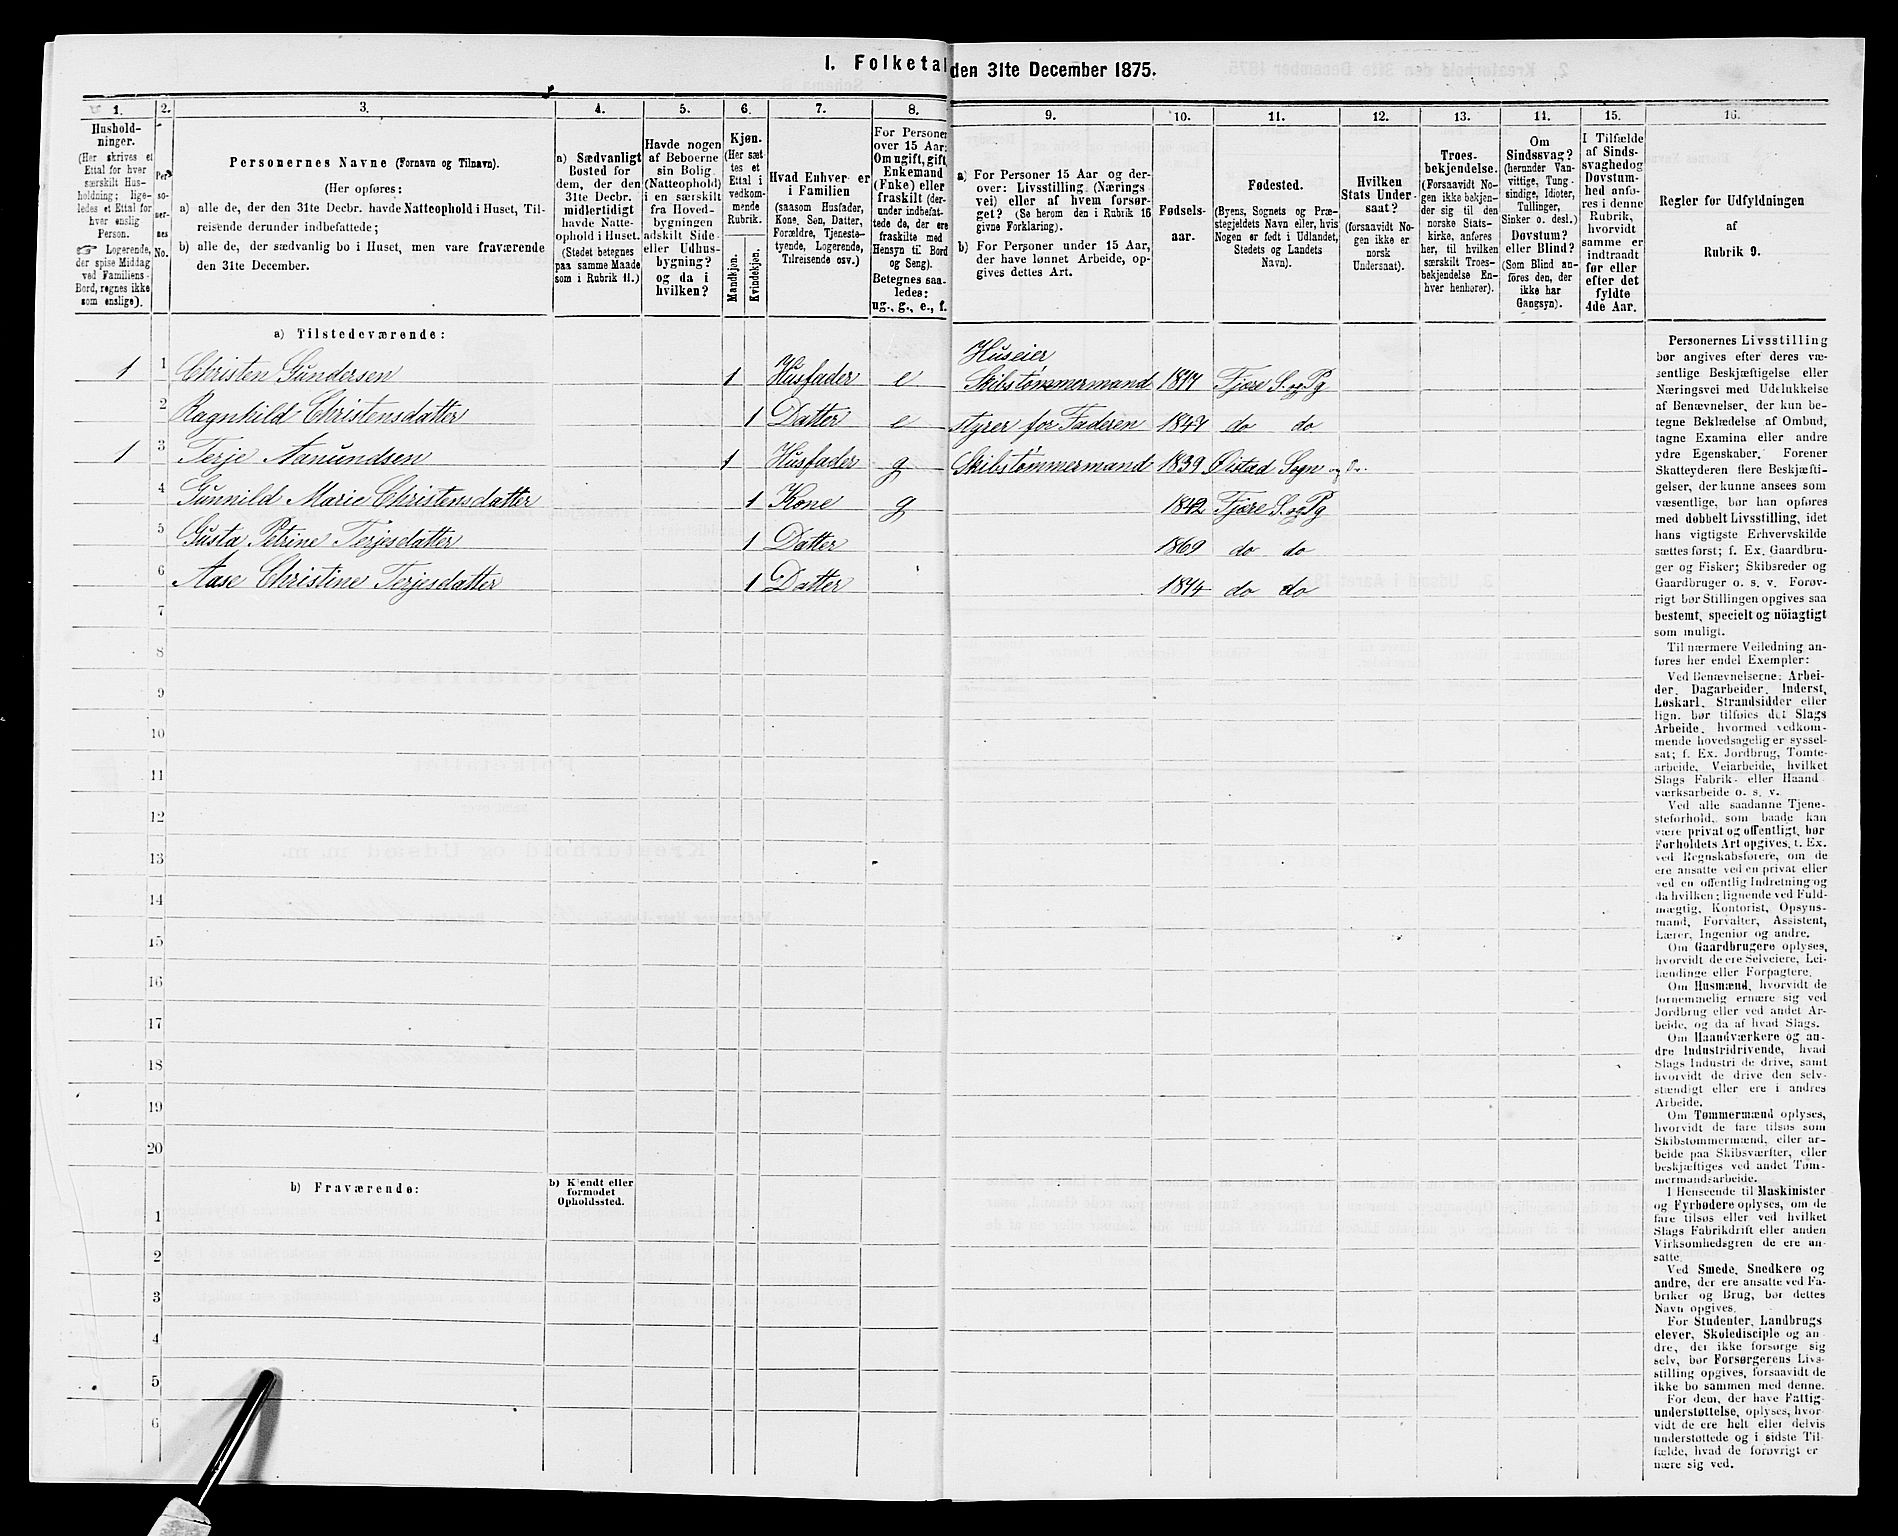 I. Folketal den 31te December 1875.
1.
2.
3.
4.
5.
6.
7.
8.
9.
10.
11.
12.
13.
14.
15.
16.
Hushold-
ninger.
(Her skrives et
Ettal for hver
særskilt Hus-
holdning; lige-
ledes et Ettal for
hver enslig
Person.
☞ Logerende,
der spise Middag
ved Familiens
Bord, regnes ikke
som enslige).
Per-
so-
ner-
nes
No.
Personernes Navne (Fornavn og Tilnavn).
(Her opføres:
a) alle de, der den 31te Decbr. havde Natteophold i Huset, Til-
reisende derunder indbefattede;
b) alle de, der sædvanlig bo i Huset, men vare fraværende
den 31te December.
a) Sædvanligt
Bosted for
dem, der den
31te Decbr.
midlertidigt
havde Natte-
ophold i Huset.
(Stedet betegnes
paa samme Maade
som i Rubrik 11.)
Havde nogen
af Beboerne
sin Bolig
(Natteophold)
i en særskilt
fra Hoved-
bygningen
adskilt Side-
eller Udhus-
bygning?
og da i
hvilken?
Kjøn.
(Her sæt-
tes et
Ettal i
vedkom-
mende
Rubrik.
Mandkjøn.
Kvindekjøn.
Hvad Enhver er
i Familien
(saasom Husfader,
Kone, Søn, Datter,
Forældre, Tjeneste-
tyende, Logerende,
Tilreisende osv.)
For Personer
over 15 Aar:
Om ugift, gift,
Enkemand
(Enke) eller
fraskilt (der-
under indbefat-
tede de, der ere
fraskilte med
Hensyn til Bord
og Seng).
Betegnes saa-
ledes:
ug., g., e., f.
a) For Personer 15 Aar og der-
over: Livsstilling (Nærings
vei) eller af hvem forsør-
get? (Se herom den i Rubrik 16
givne Forklaring).
b) For Personer under 15 Aar,
der have lønnet Arbeide, op-
gives dettes Art.
Fødsels-
aar.
Fødested.
(Byens, Sognets og Præ-
stegjeldets Navn eller, hvis
Nogen er født i Udlandet,
Stedets og Landets
Navn).
Hvilken
Stats Under-
saat?
(forsaavidt No-
gen ikke er
norsk
Undersaat).
Troes-
bekjendelse.
(Forsaavidt No-
gen ikke bekjen-
der sig til den
norske Stats-
kirke, anføres
her, til hvilken
særskilt Troes-
bekjendelse En-
hver henhører).
Om
Sindssvag?
(herunder Van-
vittige, Tung-
sindige, Idioter,
Tullinger,
Sinker o. desl.)
Døvstum?
eller Blind?
(Som Blind an-
føres den, der
ikke har
Gangsyn).
I Tilfælde
af Sinds-
svaghed og
Døvstum-
hed anfø-
res i denne
Rubrik,
hvorvidt
samme er
indtraadt
før eller
efter det
fyldte
4de Aar.
Regler for Udfyldningen
af
Rubrik 9.
a) Tilstedeværende:
Huseier
1 1 Christen Gundersen 1 Husfader e Skibstømmermand 1817 Fjære S. og Pg
2 Ragnhild Christensdatter 1 Datter e styrer for Faderen 1847 do do
1 3 Terje Aanundsen 1 Husfader g Skibstømmermand 1839 Øistad Sogn og Do.
4 Gunnild Marie Christensdatter 1 Kone g 1842 Fjære S. og Pg
5 Gusta Petrine Terjesdatter 1 Datter 1869 do do
6 Aase Christine Terjesdatter 1 Datter 1874 do do
7
8
9
10
11
12
13
14
15
16
17
18
19
20
b) Fraværende:
b) Kjendt eller
formodet
Opholdssted.
1
2
3
4
5
6
Personernes Livsstilling
bør angives efter deres væ-
sentlige Beskjæftigelse eller
Næringsvei med Udelukkelse
af Benævnelser, der kun be-
tegne Beklædelse af Ombud,
tagne Examina eller andre
ydre Egenskaber. Forener
Skatteyderen flere Beskjæfti-
gelser, der kunne ansees som
væsentlige, bør han opføres
med dobbelt Livsstilling, idet
hans vigtigste Erhvervskilde
sættes først; f. Ex. Gaardbru-
ger og Fisker; Skibsreder og
Gaardbruger o. s. v. Forøv-
rigt bør Stillingen opgives saa
bestemt, specielt og nöiagtigt
som muligt.
Til nærmere Veiledning an-
føres her endel Exempler:
Ved Benævnelserne: Arbei-
der, Dagarbeider, Inderst,
Løskarl, Strandsidder eller
lign. bør tilføies det Slags
Arbeide, hvormed vedkom-
mende hovedsagelig er syssel-
sat; f. Ex. Jordbrug, Tomte-
arbeide, Veiarbeide, hvilket
Slags Fabrik- eller Haand-
værksarbeide o. s. v.
Ved alle saadanne Tjene-
steforhold, som baade kan
være privat og offentligt, bør
Forholdets Art opgives, f. Ex.
ved Regnskabsførere, om de
ere ansatte ved en privat eller
ved en offentlig Indretning og
da hvilken; lignende ved Fuld-
mægtig, Kontorist, Opsyns-
mand, Forvalter, Assistent,
Lærer, Ingeniør og andre.
Om Gaardbrugere oplyses,
hvorvidt de ere Selveiere, Lei-
lændinge eller Forpagtere.
Om Husmænd, hvorvidt de
fornemmelig ernære sig ved
Jordbrug eller ved andet Ar-
beide, og da af hvad Slags.
Om Haandværkere og an-
dre Industridrivende, hvad
Slags Industri de drive, samt
hvorvidt de drive den selv-
stændigt eller ere i andres
Arbeide.
Om Tømmermænd oplyses,
hvorvidt de fare tilsøs som
Skibstømmermænd, eller ar-
beide paa Skibsværfter, eller
beskjæftiges ved andet Tøm-
mermandsarbeide.
I Henseende til Maskinister
og Fyrbødere oplyses, om de
fare tilsøs eller ved hvilket
Slags Fabrikdrift eller anden
Virksomhedsgren de ere an-
satte.
Ved Smede, Snedkere og
andre, der ere ansatte ved Fa-
briker og Brug, bør dettes
Navn opgives.
For Studenter, Landbrugs
elever, Skoledisciple og an
dre, der ikke forsørge sig
selv, bør Forsørgerens Livs-
stilling opgives, forsaavidt de
ikke bo sammen med denne.
For dem, der have Fattig-
understøttelse, oplyses, hvor-
vidt de ere helt eller delvis
understøttede og i sidste Til-
fælde, hvad de forøvrigt er
nære sig ved.